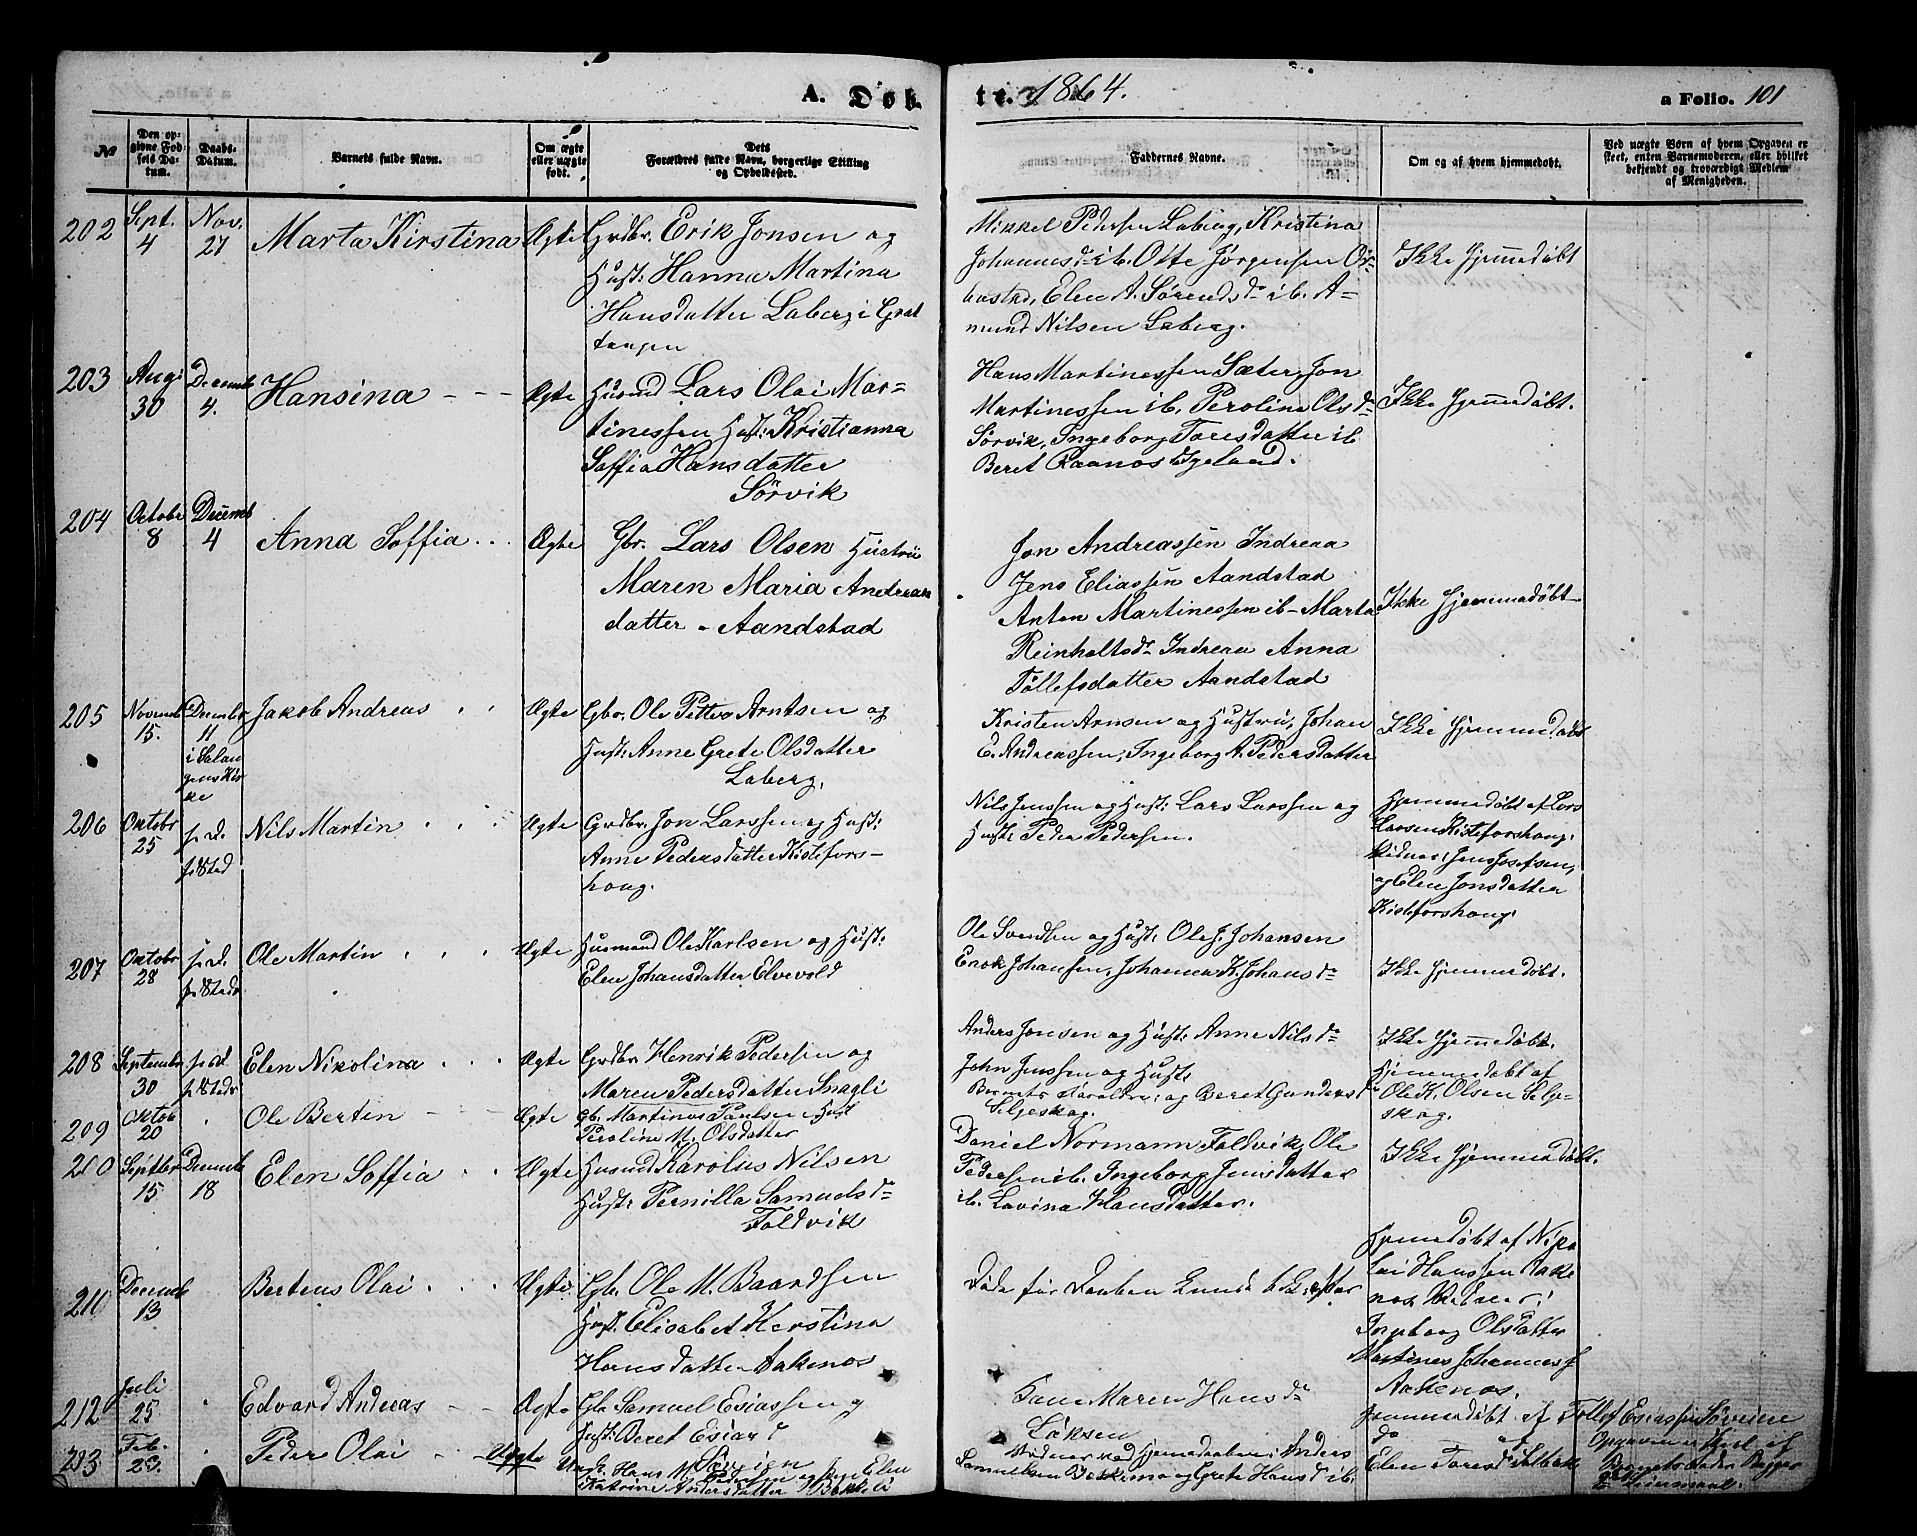 A. Døb
te. 1864.
a Folio. 101
№
Den opgivne Fødsels Datum.
Daabs-Datum.
Barnets fulde Navn.
Om ægte eller uægte født.
Dets Forældres fulde Navn, borgerlige Stilling og Opholdssted.
Faddernes Navne.
Om og af hvem hjemmedøbt.
Ved uægte Børn af hvem Opgaven er skeet, enten Barnemoderen, eller hvilket bekjendt og troværdigt Medlem af Menigheden.
202 Sept. 4 Nov. 27 Marta Kirstina Ægte Grdbr. Erik Jonsen og
Hust: Hanna Martina
Hansdatter Laberg i Grat
tangen
Mikkel Pedersen Laberg, Kristina
Johannesdr ib. Otte Jørgensen
Elen A. Sørensdr ib. A-
mund Nilsen Laberg.
Ikke hjemmedøbt
203 Aug: 30 Decemb 4. Hansina - - - Ægte Husmd Lars Olai Mar-
tinessen Hust: Kristianna
Soffia Hansdatter
Sørvik
Hans Martinessen Sæter, Jon
Martinessen ib. Peroline Olsdr
Sørvik, Ingeborg Toresdatter ib
Beret
Ikke hjemmedøbt.
204 Octobr 8 Decemb 4 Anna Soffia . . . Ægte Gbr. Lars Olsen Hustru
Maren Maria Andreas
datter - Aandstad
Jon Andreassen Indreaa
Jens Eliassen Aandstad
Anton Martinessen ib - Marta
Reinholtsdr Indreaa Anna
Tollefsdatter Aandstad
Ikke hjemmedøbt
205 Novemb 15. Decembr 11 i Salangens Kirke Jakob Andreas . . Ægte Gbr. Ole Petter Arntsen og
Hust: Anne Grete Olsdatter
Laberg.
Kristen Arnsen og Hustru, Johan
E. Andreassen, Ingeborg A. Pedersdatter
Ikke hjemmedøbt
206 Oktobr 25 s. D. s. Sted Nils Martin . . . Ægte Grdbr. Jon Larssen og Hust:
Anne Pedersdatter Kistefors-
haug.
Nils Jenssen og Hust: Lars Larssen og
Hust: Peder Pedersen.
Hjemmedøbt af Lars
Larsen Kisteforshaug.
Vidner: Jens Josefsen,
og Elen Jonsdatter
Kisteforshaug.
207 Oktobr 28 s. D. s. Sted Ole Martin . . . Ægte Husmand Ole Karlsen og Hust:
Elen Johansdatter Elvevold
Ole Svendsen og Hust: Ole J. Johansen
Enok Johansen, Johanna K. Johansdr
Ikke hjemmedøbt.
208 Septembr 30 s. D. s. Sted Elen Nikolina . . . Ægte Grdbr. Henrik Pedersen og
Maren Pedersdatter Snagli
Anders Jonsen og Hust: Anne Nilsdr
John Jenssen og Hust:
Ikke hjemmedøbt.
209 Oktob 20 . Ole Bertin - - - Ægte Gb. Martinus Paulsen Hust
Peroline M. Olsdatter
Barnets Forældre: og Beret Gundersdr
Seljeskog.
Hjemmedøbt af
Ole K. Olsen Selje-
skog.
210 Septbr 15 Decemb 18 Elen Soffia . . Ægte Husmd Karolus Nilsen
Hust: Pernilla Samuelsdr
Foldvik
Daniel Normann Foldvik, Ole
Pedersen ib. Ingeborg Jensdatter
ib. Lovina Hansdatter.
Ikke hjemmedøbt.
211 Decemb 13 Berteus Olai . . . Ægte Gb. Ole M. Baardsen
Hust. Elisabet Kerstina
Hansdatter Aakenes
Døde før Daaben
Hjemmedøbt af Niko
lai Hanssen Aake
nes Vidner:
Ingeborg Olsdatter
Martines Johannes
Aakenes.
212 Juli 25 . Edvard Andreas - - Ægte Gb. Samuel Esiassen og
Hust: Beret Esiasd
Maren Hansdr
Løksen
Hjemmedøbt af Tollef Esiassen
213 Feb. 23. . Peder Olai - - Uægte Hans M. Pedersen og Pige Elen
Katrine Andersdatter Bakkeli
Vidner ved Hjemmedaaben: Anders
Samuelsen og Grete Hansdr ib.
do af
Elen Toresdr
Opgaven er skeet af
Barnets Fader